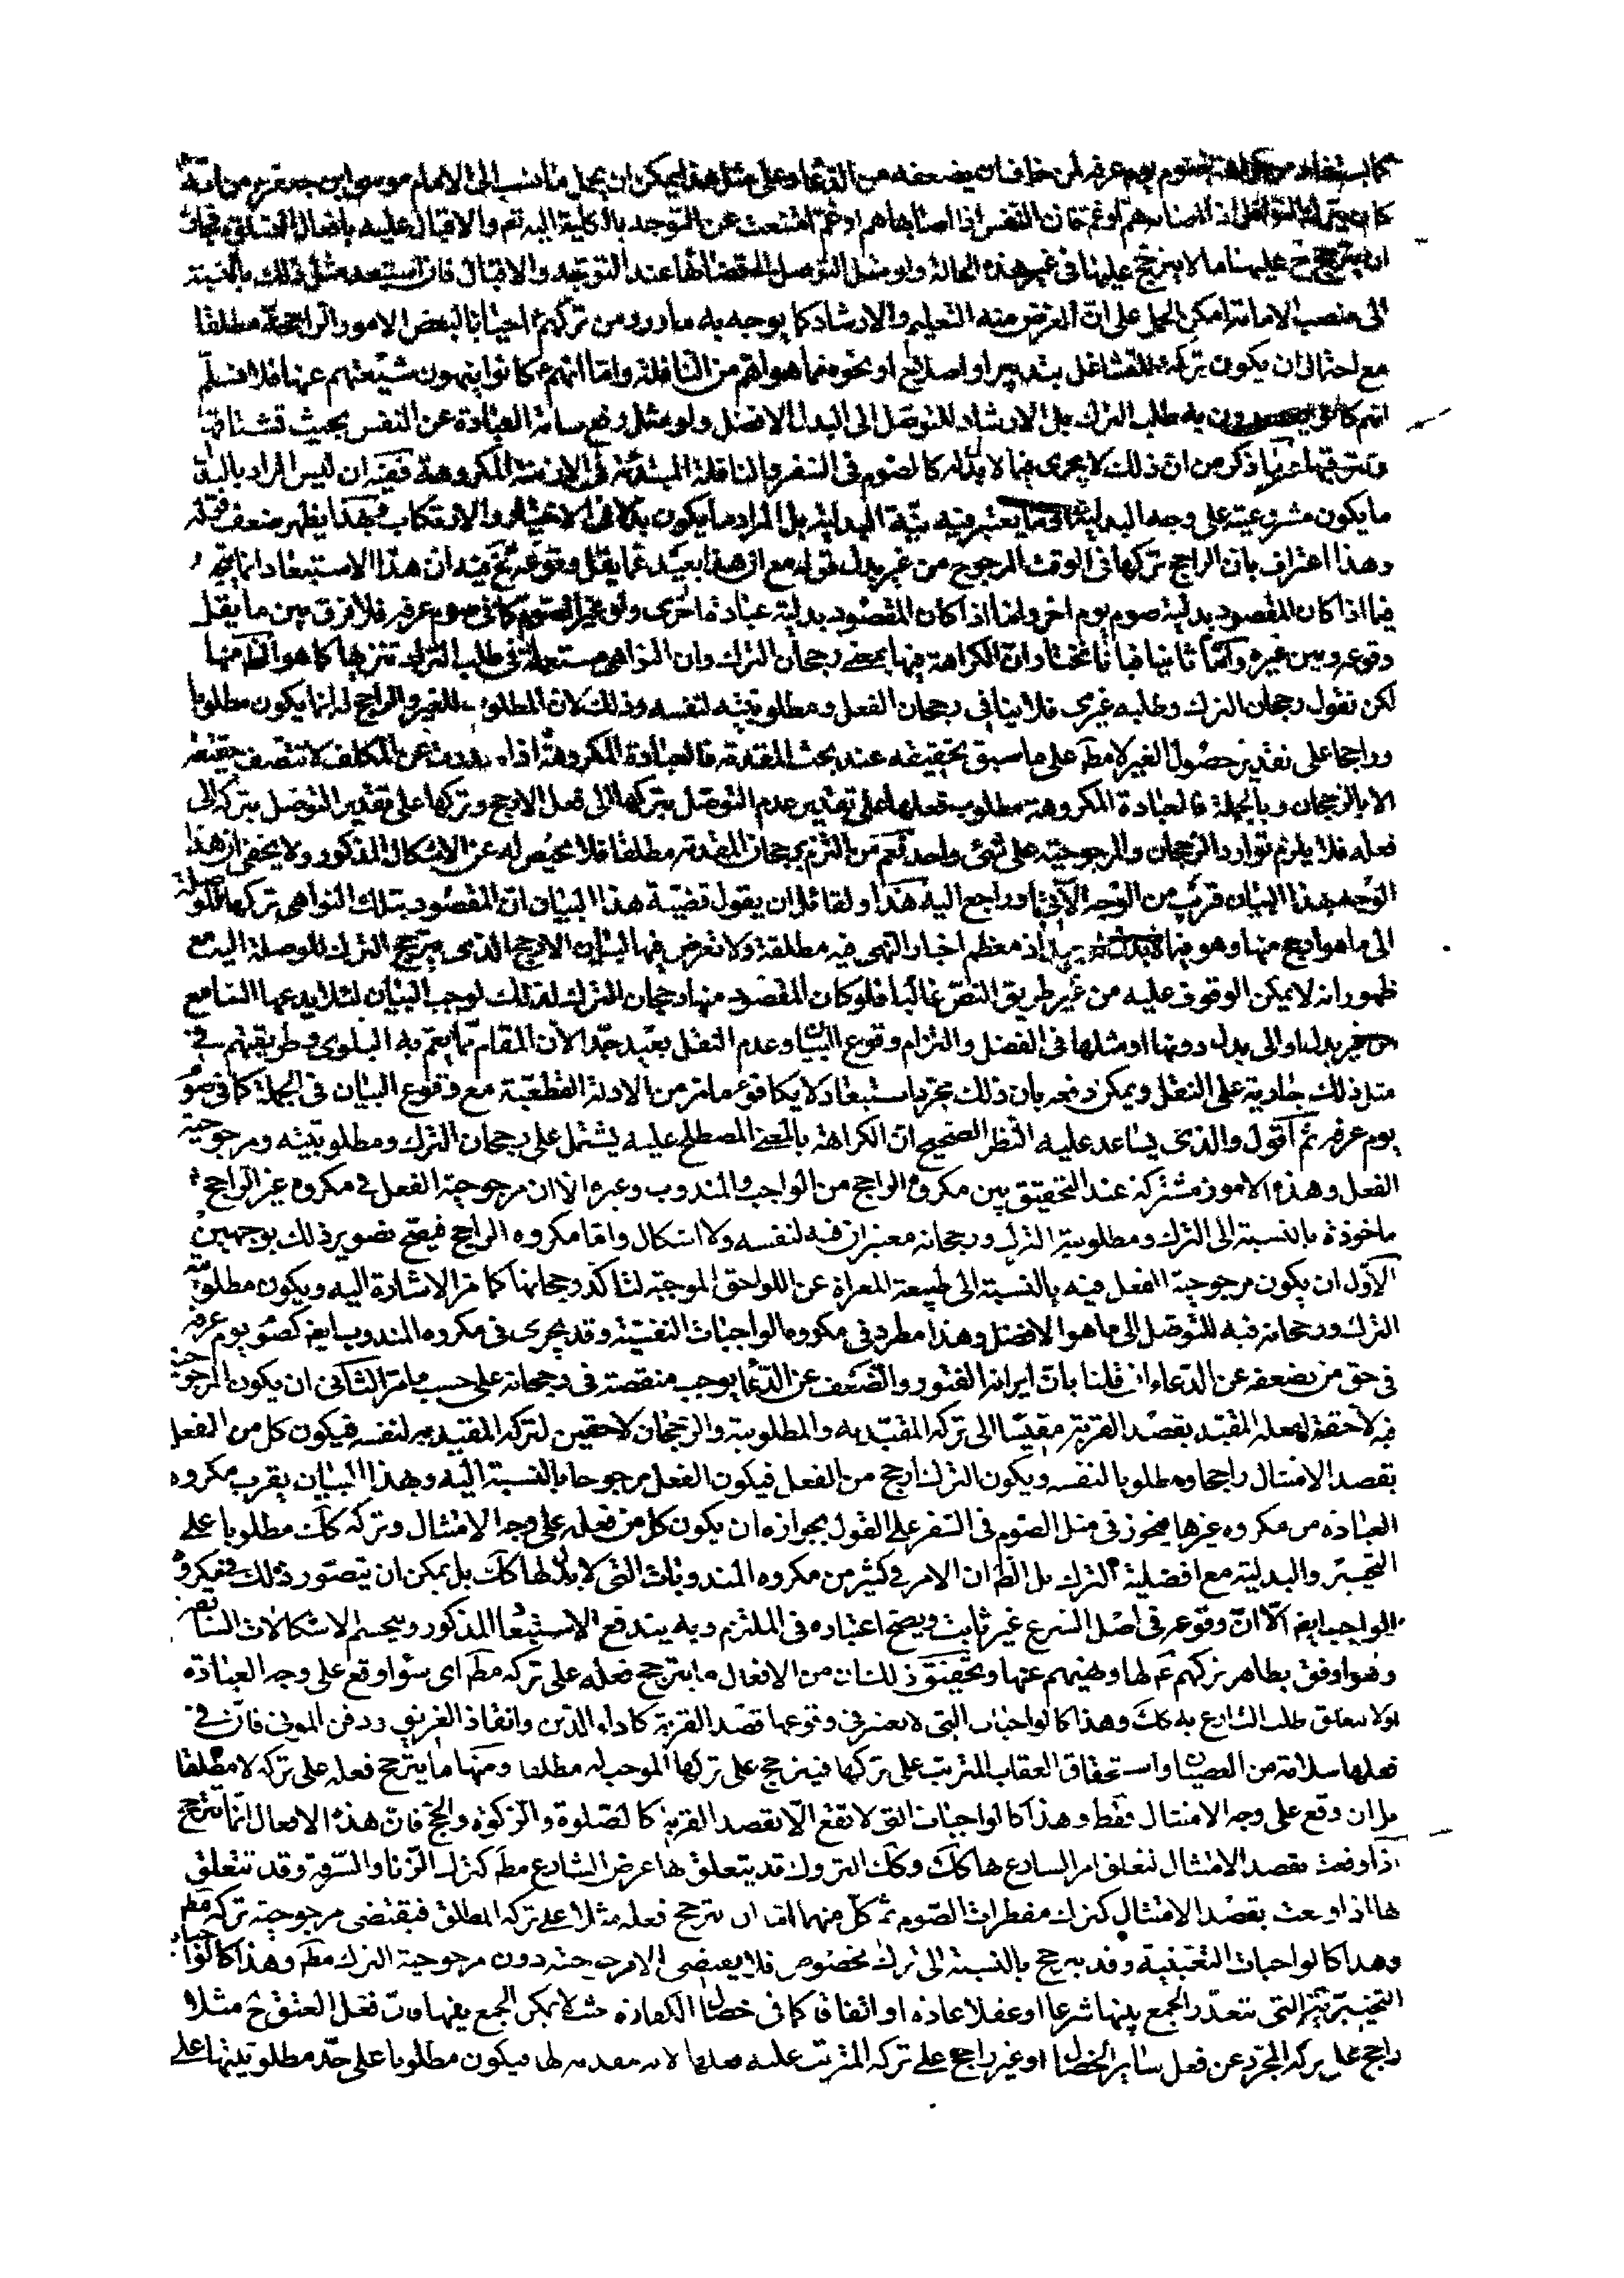 كما يستفاد من كراهة صوم يوم عرفة لمن خاف ان يضعفه من الدعاء وعلى مثل هذا يمكن ان يحمل ما نسب الى الامام موسى ابن جعفر من انه
كان يترك النوافل اذا اصابه هم او غم فان النفس اذا اصابها هم او غم امتنعت عن التوجه بالكلية اليه تعم والاقبال عليه بافعال
ان يترجح ح عليها ما لا يترجح عليها في غير هذه الحالة ولو مثل التوصل عند التوجه والاقبال فان استبعد مثل ذلك بالنسبة
الى منصب الامامة امكن الحمل على ان الغرض منه التعليم والارشاد كما يوجه به ما ورد من تركهم احيانا لبعض الامور الراجحة مطلقا
مع احتمال ان يكون تركه للتشاغل بتدبير او اصلاح او نحوه مما هو اهم من النافلة واما انهم ع كانوا ينهون شيعتهم عنها فلا نسلم
انهم كانوا يقصدون به طلب الترك بل الارشاد للتوصل الى البدل الافضل ولو مثل رفع سامة العبادة عن النفس بحيث تشتاقها
وما ذكر من ان ذلك لا يجري فيما لا بدل له كالصوم في السفر والنافلة المبتدئة في الازمنة المكروهة ففيه ان ليس المراد بالبدل
ما يكون مشروعيته على وجه البدلية ما يعتبر فيه نية البدلية بل المراد ما يكون بدلا في الاختيار والارتكاب وبهذا يظهر ضعف قوله
وهذا اعتراف بان الراجح تركها في الوقت المرجوح من غير بدل قوله مع ان هذا بعيد مما يقل وقوعه ففيه ان هذا الاستبعاد انما يتجه
فيما اذا كان المقصود بدلية صوم يوم اخر واما اذا كان المقصود بدلية عبادة ما اخرى ولو غير الصوم كما في صوم عرفة فلا فرق بين ما يقل
وقوعه وبين غيره واما ثانيا فبانا نختار ان الكراهة فيها بمعنى رجحان الترك وان النواهي مستعملة في طلب الترك تنزيها كما هو الظ منها
لكن نقول رجحان الترك وطلبه غيري فلا ينافي رجحان الفعل ومطلوبيته لنفسه وذلك لان المطلوب للغير والراجح له انما يكون مطلوبا
وراجحا على تقدير حصول الغير لا مطم على ما سبق تحقيقه عند بحث المقدمة فالعبادة المكروهة اذا صدرت عن المكلف لا تتصف حقيقة
الا بالرجحان وبالجملة فالعبادة المكروهة مطلوب فعلها على تقدير عدم التوصل بتركها الى فعل الارجح وتركها على تقدير التوصل بتركه الى
فعله فلا يلزم توارد الرجحان والمرجوحية على شيء واحد نعم من التزم برجحان المقدمة مطلقا فلا محيص له عن الاشكال المذكور ولا يخفى ان هذا
الوجه بهذا البيان قريب من الوجه الآتي او راجع اليه هذا ولقائل ان يقول قضية هذا البيان ان المقصود بتلك النواهي تركها للوصلة
الى ما هو ارجح منها وهو فيما لا بدل له بعيد اذ معظم اخبار النهي فيه مطلقة ولا تعرض فيها لبيان الارجح الذي يترجح الترك للوصلة اليه مع
ظهور انه لا يمكن الوقوف عليه من غير طريق النص غالبا فلو كان المقصود منها رجحان الترك لذلك لوجب البيان لئلا يدعها السامع
من غير بدل او الى بدل دونها او مثلها في الفضل والتزام وقوع البيان وعدم النقل بعيد جدا لان المقام مما يعم به البلوى وطريقتهم في
مثل ذلك جارية على النقل ويمكن دفعه بان ذلك مجرد استبعاد لا يكافؤ ما مر من الادلة القطعية مع وقوع البيان في الجملة كما في صوم
يوم عرفة ثم اقول والذي يساعد عليه النظر الصحيح ان الكراهة بالمعنى المصطلح عليه يشتمل على رجحان الترك ومطلوبيته ومرجوحية
الفعل وهذه الامور مشتركة عند التحقيق بين مكروه الراجح من الواجب والمندوب وغيره الا ان مرجوحية الفعل في مكروه غير الراجح
ماخوذة بالنسبة الى الترك ومطلوبية الترك ورجحانه معتبران فيه لنفسه ولا اشكال واما مكروه الراجح فيصح تصوير ذلك بوجهين
الاول ان يكون مرجوحية الفعل فيه بالنسبة الى طبيعة المعراة عن اللواحق الموجبة لتاكد رجحانها كما مر الاشارة اليه ويكون مطلوبية
الترك ورجحانه فيه للتوصل الى ما هو الافضل وهذا مطرد في مكروه الواجبات النفسية وقد يجرى في مكروه المندوب ايض كصوم يوم عرفة
في حق من يضعفه عن الدعاء ان قلنا بان ايراثه الفتور والضعف عن الدعاء يوجب منقصة في رجحانه على حسب ما مر الثاني ان يكون المرجوحية
فيه لاحقة لفعله المقيد بقصد القربة مقيسا الى تركه المقيد به والمطلوبية والرجحان لاحقين لتركه المقيد به لنفسه فيكون كل من الفعل
بقصد الامتثال راجحا ومطلوبا لنفسه ويكون الترك ارجح من الفعل فيكون الفعل مرجوحا بالنسبة اليه وبهذا البيان يقرب مكروه
العبادة من مكروه غيرها فيجوز في مثل الصوم في السفر على القول بجوازه ان يكون كل من فعله على وجه الامتثال وتركه كك مطلوبا على
التخيير والبدلية مع افضلية الترك بل الظ ان الامر في كثير من مكروه المندوبات التي لا بدل لها كك بل يمكن ان يتصور ذلك في مكروه
الواجب ايض الا ان وقوعه في اصل الشرع غير ثابت ويصح اعتباره في الملتزم وبه يندفع الاستبعاد المذكور وينحسم الاشكالات السابقة
وهو اوفق بظاهر تركهم ع لها ونهيهم عنها وتحقيق ذلك ان من الافعال ما يترجح فعله على تركه مطم اي سواء وقع على وجه العبادة
اولا فيتعلق طلب الشارع به كك وهذا كالواجبات التي لا يعتبر في وقوعها قصد القربة كاداء الدين وانقاذ الغريق ودفن الموتى فان في
فعلها سلامة من العصيان واستحقاق العقاب المترتب على تركها فيترجح على تركها الموجب له مطلقا ومنها ما يترجح فعله على تركه لا مطلقا
بل ان وقع على وجه الامتثال فقط وهذا كالواجبات التي لا تقع الا بقصد القربة كالصلوة والزكوة والحج فان هذه الافعال انما تترجح
اذا وقعت بقصد الامتثال فتعلق امر الشارع بها كك وكك التروك قد يتعلق بها غرض الشارع مطم كترك الزنا والسرقة وقد تتعلق
بها اذا وقعت بقصد الامتثال كترك مفطرات الصوم ثم كل منهما اما ان يترجح فعله مثلا على تركه المطلق فيقتضى مرجوحية تركه مطم
وهذا كالواجبات التعيينية وقد يترجح بالنسبة الى ترك مخصوص فلا يقتضى الا مرجوحيته دون مرجوحية الترك مطم وهذا كالواجبات
التخييرية التي يتعذر الجمع بينها شرعا او عقلا او عادة او اتفاقا كما في خصال الكفارة حيث لا يمكن الجمع بينها فان فعل العتق ح مثلا
راجح على تركه المجرد عن فعل ساير الخصال او غير راجح على تركه المترتب عليه فعلها لانه مقدمة لها فيكون مطلوبا على حد مطلوبيتها على